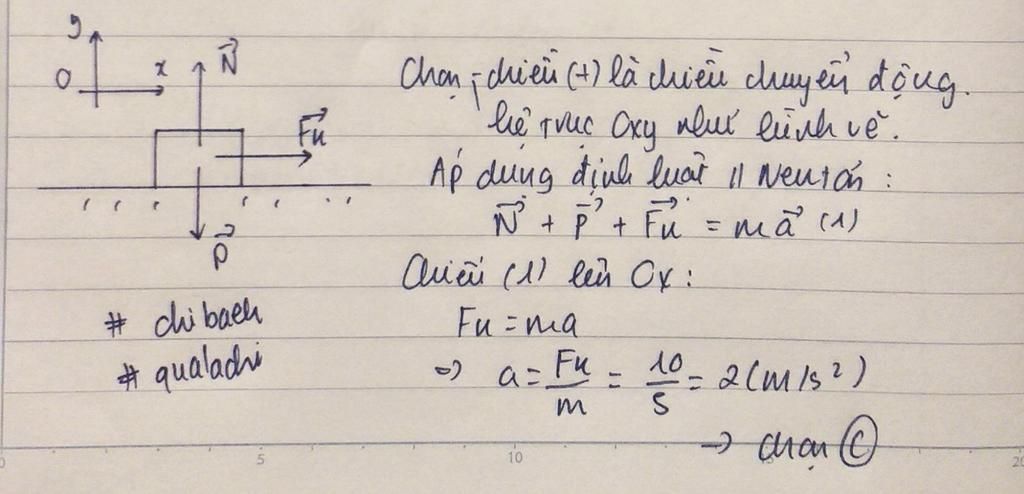 y
O x
N⃗
F⃗k
P⃗
Chọn chiều (+) là chiều chuyển động.
hệ trục Oxy như hình vẽ.
Áp dụng định luật II Neutơn :
N⃗ + P⃗ + F⃗k = ma⃗ (1)
Chiếu (1) lên Ox :
Fk = ma
=> a = Fk/m = 10/5 = 2 (m/s²)
→ chọn Ⓒ
# chibaeh
# qualachi
0 5 10 15 20